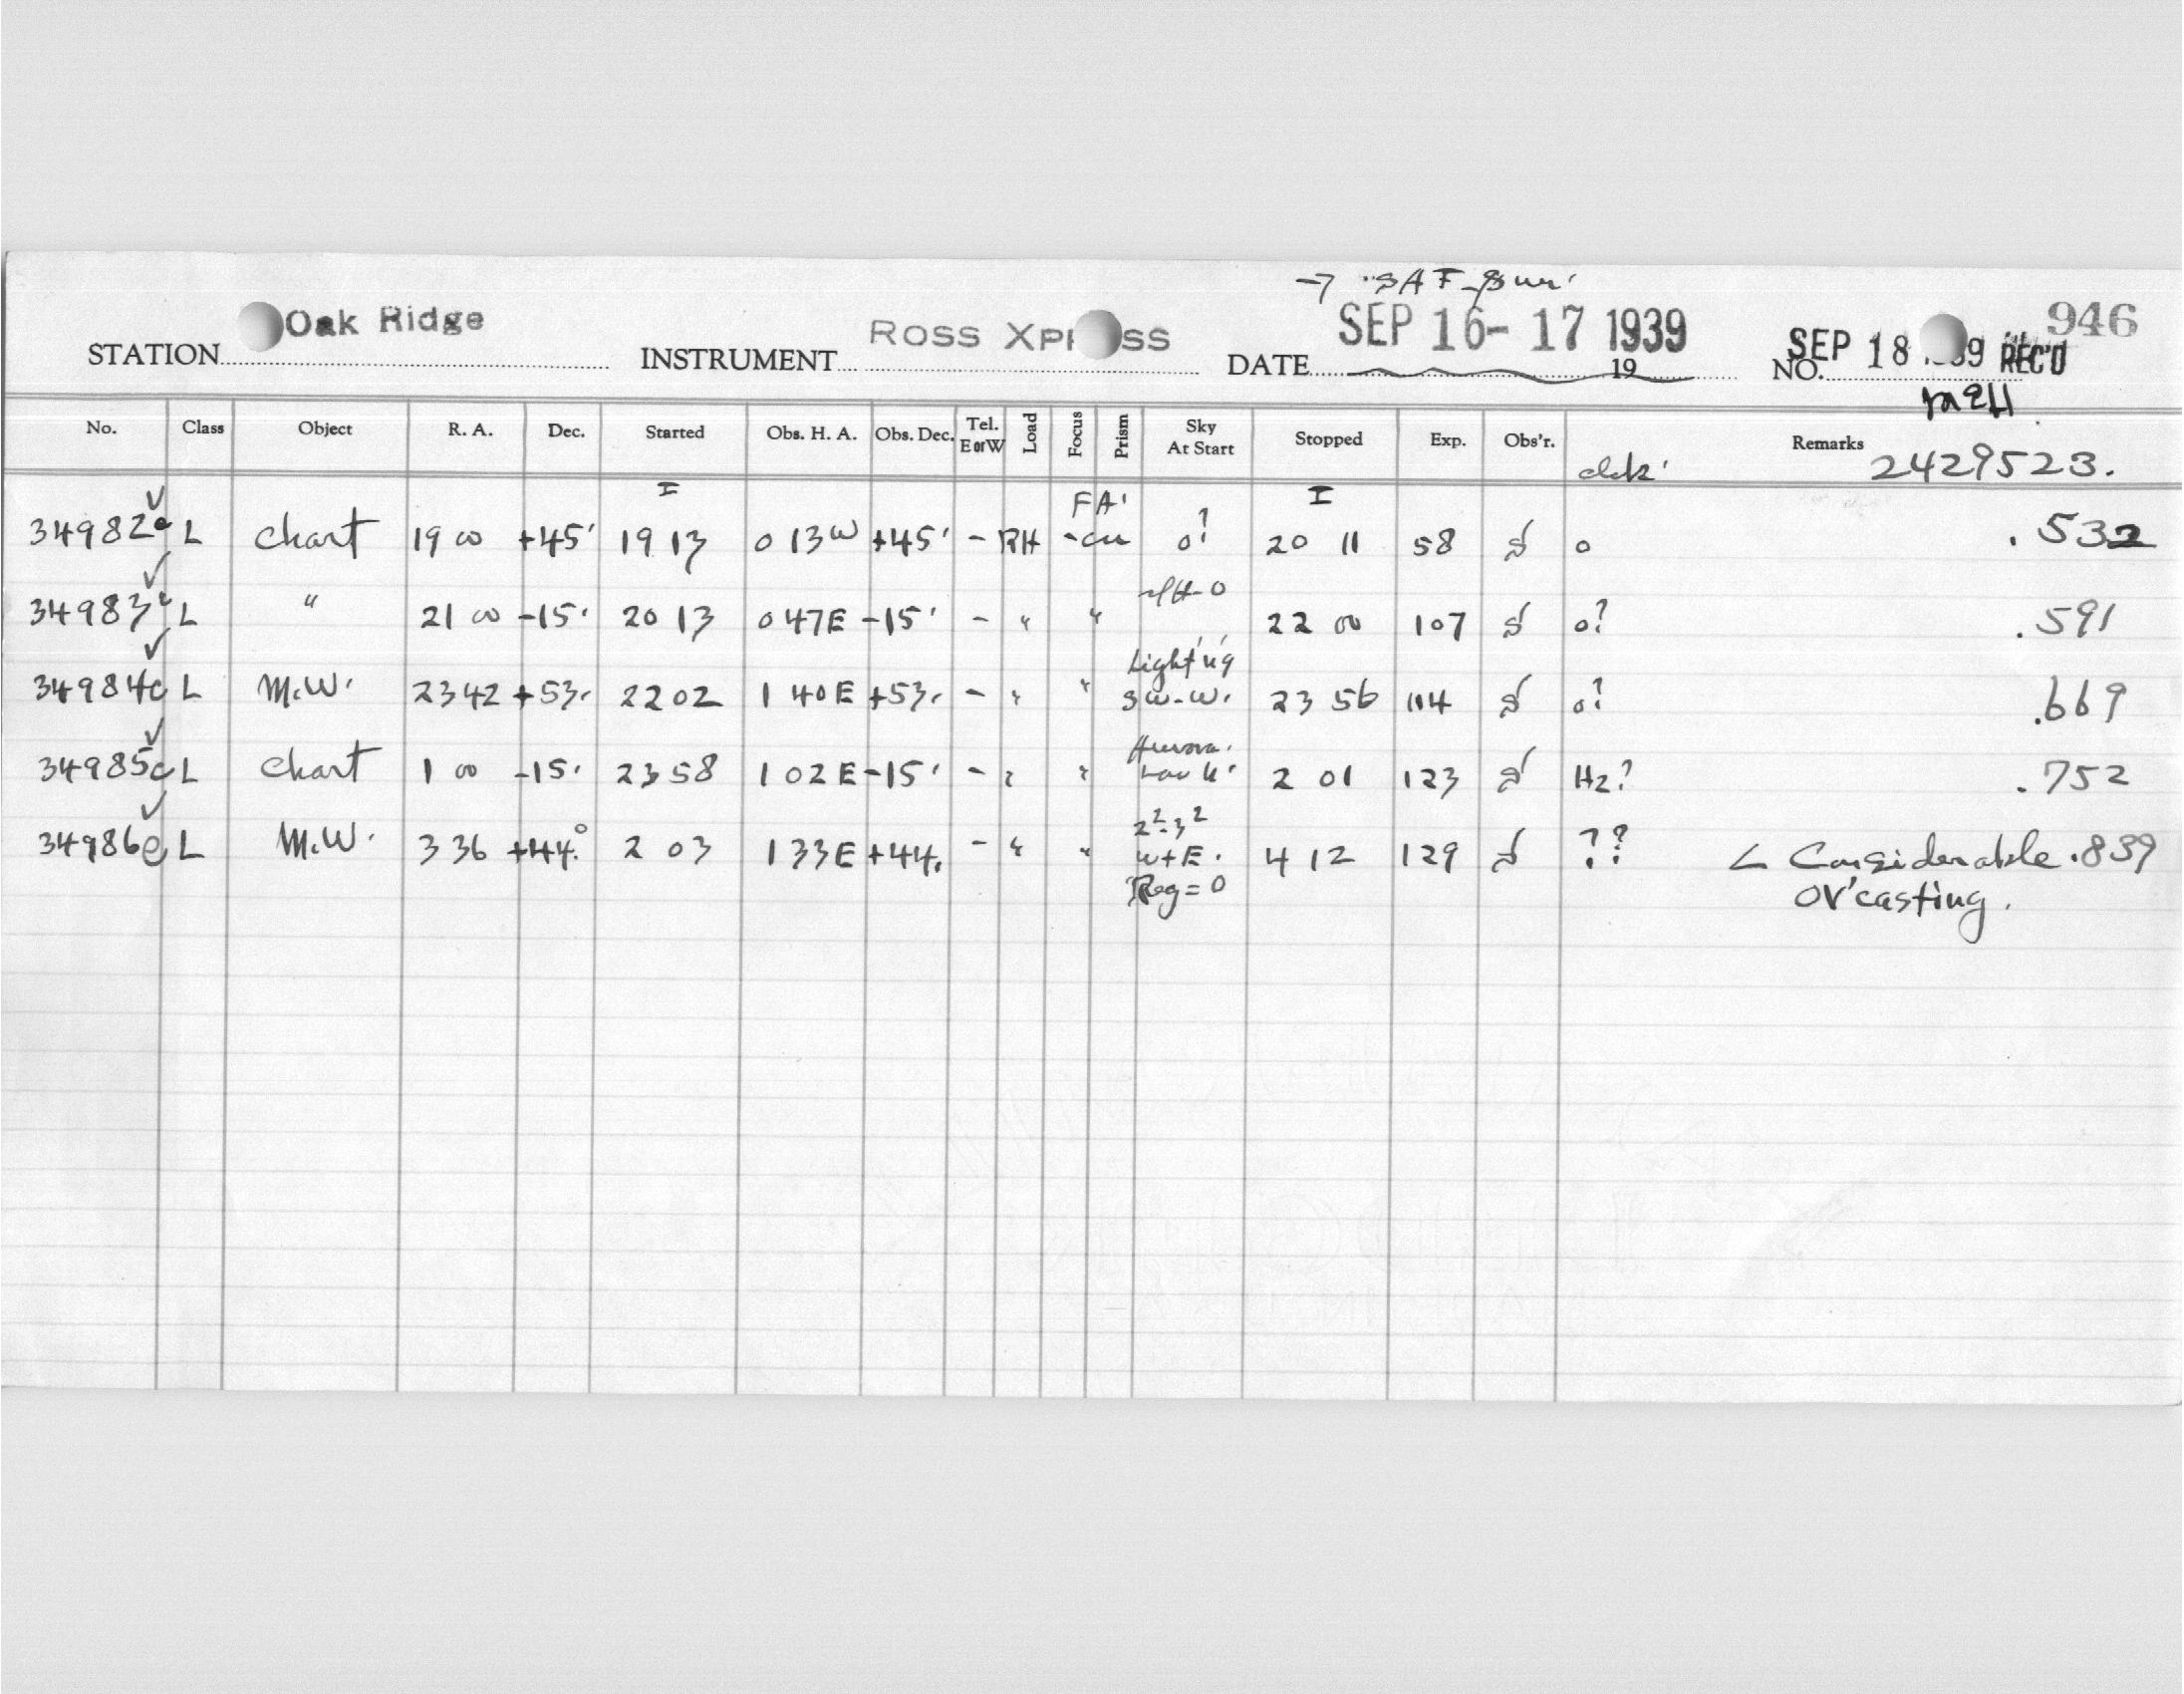 → "SAT-Sun'
STATION Oak Ridge INSTRUMENT ROSS XPRESS DATE SEP 16-17 1939 19 NO. SEP 18 39 REC'D 946
No. Class Object R. A. Dec. Started Obs. H. A. Obs. Dec. Tel. E or W Load Focus Prism Sky At Start Stopped Exp. Obs'r. Remarks
2429523.
I FA' I
34982 L Chart 19 00 +45' 19 13 0 13 W +45' - RH 0? 20 11 58 0 .532
34983 L " 21 00 -15' 20 13 0 47 E -15' - " " 0 22 00 107 0? .591
34984 L M.W. 23 42 +53. 22 02 1 40 E +53. - " " Light'n'g SW-W. 23 56 114 0? .669
34985 L Chart 1 00 -15' 23 58 1 02 E -15' - " " Aurora. Low N' 2 01 123 Hz? .752
34986 L M.W. 3 36 +44.° 2 03 1 33 E +44. - " " 2²-3² W+E. Reg=0 4 12 129 ?? ∠ Considerable .839
OV'casting.